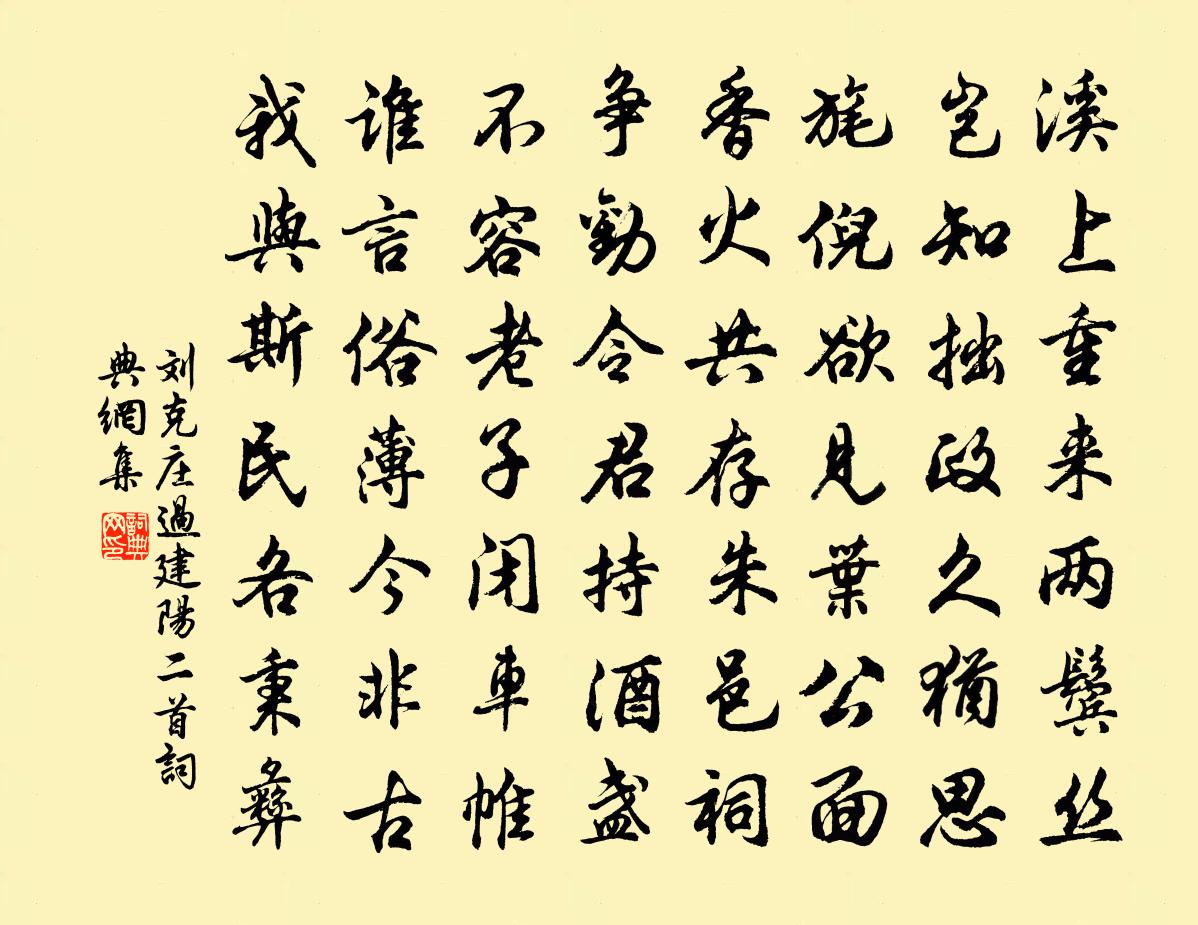 溪上重来两鬓丝
岂知拙政久犹思
旄倪欲见葉公面
香火共存朱邑祠
争勸令君持酒盏
不容老子闭車帷
谁言俗薄今非古
我與斯民各秉彝
刘克庄過建陽二首詞
典網集
詞典
网印